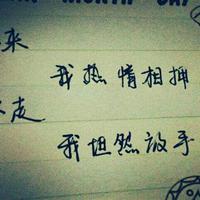 MONTH DAY
来
我热情相拥
走
我坦然放手